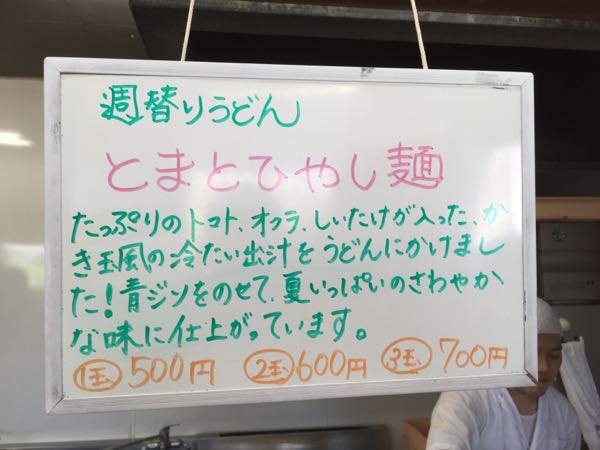 週替りうどん
とまとひやし麺
たっぷりのトマト、オクラ、しいたけが入った、か
き玉風の冷たい出汁をうどんにかけまし
た！青ジソをのせて、夏いっぱいのさわやか
な味に仕上がっています。
1玉 500円 2玉 600円 3玉 700円